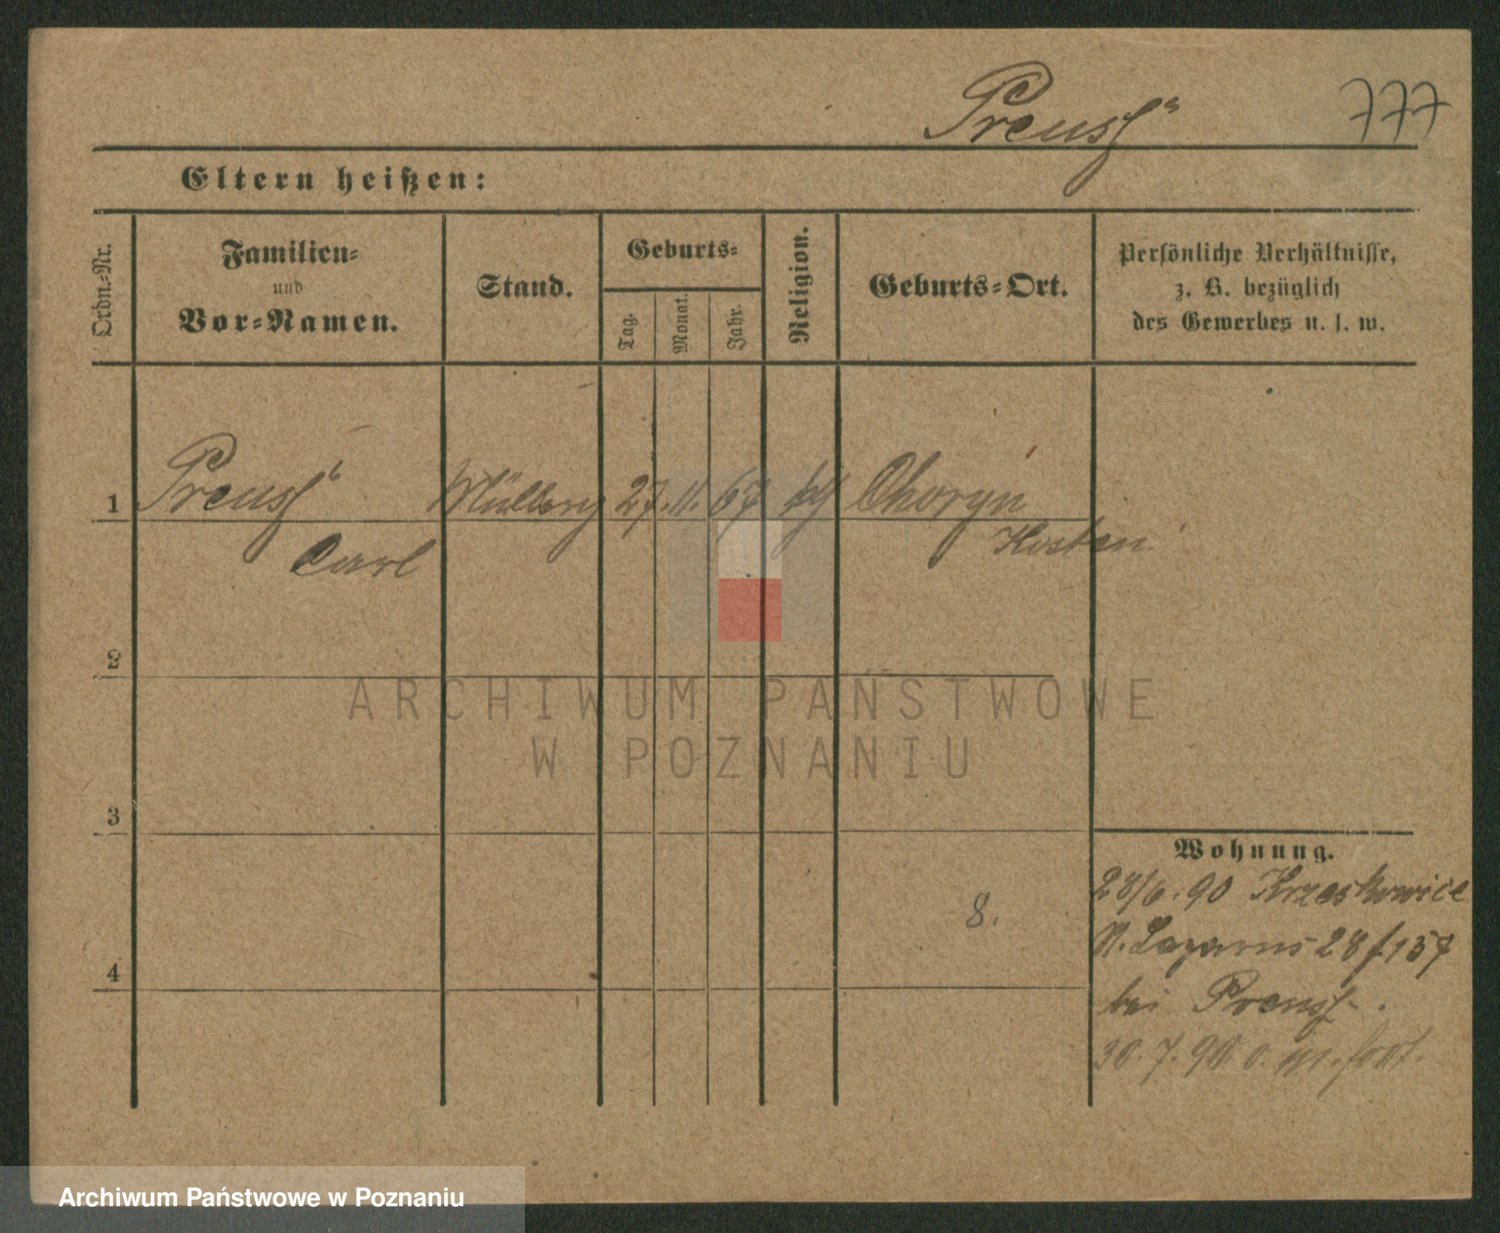 Preuß
777
Eltern heißen:
Ordn.-Nr.
Familien-
und
Vor-Namen.
Stand.
Geburts-
Tag.
Monat.
Jahr.
Religion.
Geburts-Ort.
Persönliche Verhältnisse,
z. B. bezüglich
des Gewerbes u. s. w.
1
Preuß
Carl
27. 11. 67
Choryn
Kosten
2
3
4
8.
Wohnung.
28/6. 90 Krzeskowice
St. Lazarus 28 f 157
bei Preuß.
30. 7. 90
ARCHIWUM PAŃSTWOWE
W POZNANIU
Archiwum Państwowe w Poznaniu